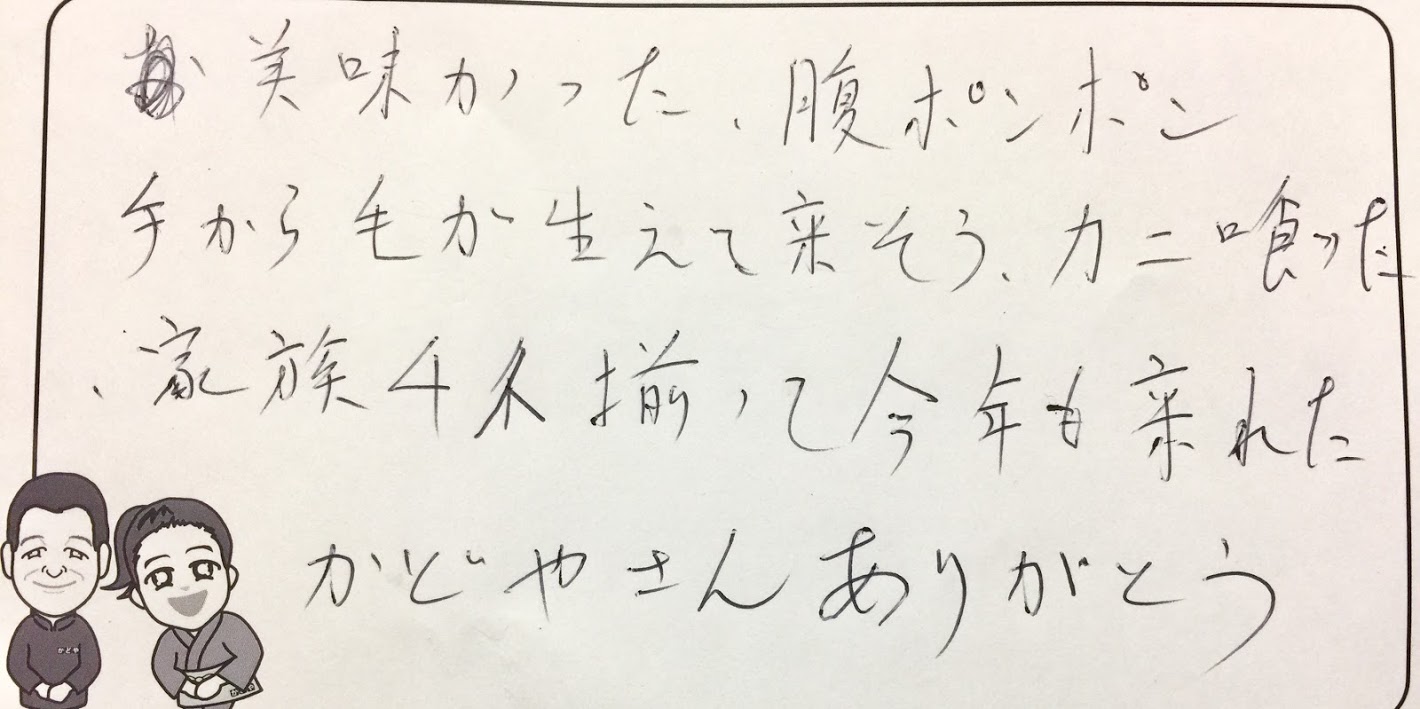 美味かった、腹ポンポン
手から毛が生えて来そう、カニ喰った
、家族4人揃って今年も来れた
かどやさんありがとう
かどや